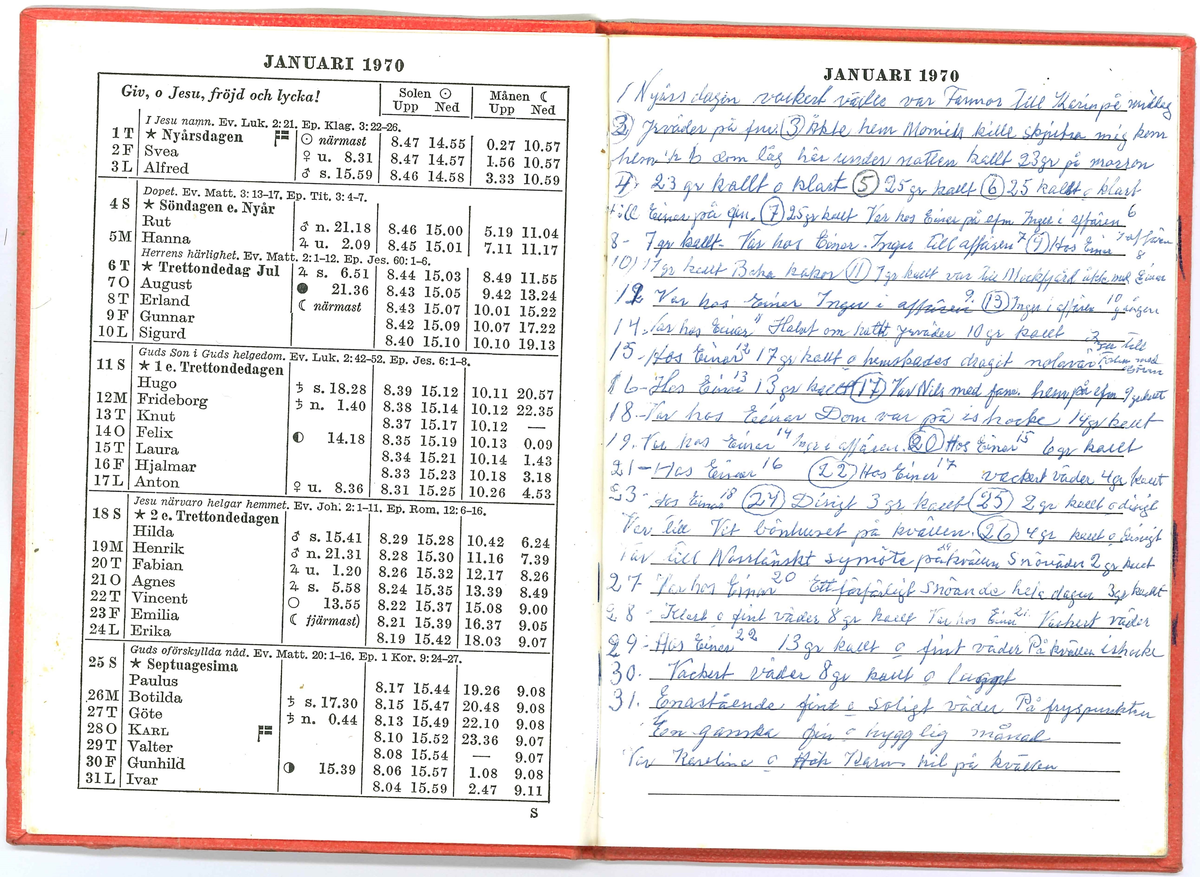 JANUARI 1970
Giv, o Jesu, fröjd och lycka!
Solen ☉ Upp Ned
Månen ☾ Upp Ned
I Jesu namn. Ev. Luk. 2:21. Ep. Klag. 3:22-26.
1 T ★ Nyårsdagen ☉ närmast 8.47 14.55 0.27 10.57
2 F Svea ♀ u. 8.31 8.47 14.57 1.56 10.57
3 L Alfred ♂ s. 15.59 8.46 14.58 3.33 10.59
Dopet. Ev. Matt. 3:13-17. Ep. Tit. 3:4-7.
4 S ★ Söndagen e. Nyår
Rut ♂ n. 21.18 8.46 15.00 5.19 11.04
5 M Hanna ♃ u. 2.09 8.45 15.01 7.11 11.17
Herrens härlighet. Ev. Matt. 2:1-12. Ep. Jes. 60:1-6.
6 T ★ Trettondedag Jul ♃ s. 6.51 8.44 15.03 8.49 11.55
7 O August ● 21.36 8.43 15.05 9.42 13.24
8 T Erland ☾ närmast 8.43 15.07 10.01 15.22
9 F Gunnar 8.42 15.09 10.07 17.22
10 L Sigurd 8.40 15.10 10.10 19.13
Guds Son i Guds helgedom. Ev. Luk. 2:42-52. Ep. Jes. 6:1-8.
11 S ★ 1 e. Trettondedagen
Hugo ♄ s. 18.28 8.39 15.12 10.11 20.57
12 M Frideborg ♄ n. 1.40 8.38 15.14 10.12 22.35
13 T Knut 8.37 15.17 10.12 —
14 O Felix ◐ 14.18 8.35 15.19 10.13 0.09
15 T Laura 8.34 15.21 10.14 1.43
16 F Hjalmar 8.33 15.23 10.18 3.18
17 L Anton ♀ u. 8.36 8.31 15.25 10.26 4.53
Jesu närvaro helgar hemmet. Ev. Joh. 2:1-11. Ep. Rom. 12:6-16.
18 S ★ 2 e. Trettondedagen
Hilda ♂ s. 15.41 8.29 15.28 10.42 6.24
19 M Henrik ♂ n. 21.31 8.28 15.30 11.16 7.39
20 T Fabian ♃ u. 1.20 8.26 15.32 12.17 8.26
21 O Agnes ♃ s. 5.58 8.24 15.35 13.39 8.49
22 T Vincent ○ 13.55 8.22 15.37 15.08 9.00
23 F Emilia ☾ fjärmast) 8.21 15.39 16.37 9.05
24 L Erika 8.19 15.42 18.03 9.07
Guds oförskyllda nåd. Ev. Matt. 20:1-16. Ep. 1 Kor. 9:24-27.
25 S ★ Septuagesima
Paulus 8.17 15.44 19.26 9.08
26 M Botilda ♄ s. 17.30 8.15 15.47 20.48 9.08
27 T Göte ♄ n. 0.44 8.13 15.49 22.10 9.08
28 O KARL 8.10 15.52 23.36 9.07
29 T Valter 8.08 15.54 — 9.07
30 F Gunhild ◑ 15.39 8.06 15.57 1.08 9.08
31 L Ivar 8.04 15.59 2.47 9.11
S
JANUARI 1970
1 Nyårsdagen vackert väder var Farmor till Karin på middag
2) Yrväder på fm (3) Åkte hem kille skjutsa mig kom
hem dom låg här under natten kallt 23 gr på morron
4. 23 gr kallt o klart (5) 25 gr kallt (6) 25 kallt o klart
till Einar på fm. (7) 25 gr kallt Var hos Einar på efm Inger i affären 6
8 - 7 gr kallt - Var hos Einar. Inger till affären 7 (9) Hos Einar 8 i affären
10) 17 gr kallt Baka kakor (11) 7 gr kallt var till Mockfjärd åkte med Einar
12 Var hos Einar Inger i affären 9. (13) Inger i affären 10 gången
14 - Var hos Einar 11 Halvt om halft yrväder 10 gr kallt
15 - Hos Einar 12 17 gr kallt o dragit Inger till med
16 - Hos Einar 13 13 gr kallt (17) Var Nils med fam. hem på efm 9 gr kallt
18 - Var hos Einar Dom var på ishocke 14 gr kallt
19. Var hos Einar 14 Inger i affären. (20) Hos Einar 15 6 gr kallt
21 - Hos Einar 16 (22) Hos Einar 17 vackert väder 4 gr kallt
23 - Hos Einar 18 (24) Disigt 3 gr kallt (25) 2 gr kallt o disigt
Var till bönhuset på kvällen. (26) 4 gr kallt o disigt
Var till Norrlänskt symöte på kvällen Snöväder 2 gr kallt
27 Var hos Einar 20 Ett förfärligt snöande hela dagen 3 gr kallt
28 - Klart o fint väder 8 gr kallt Var hos Einar 21. Vackert väder
29 - Hos Einar 22 13 gr kallt o fint väder På kvällen ishocke
30. Vackert väder 8 gr kallt o lugnt
31. Enastående fint o soligt väder På fryspunkten
En ganska fin o hygglig månad
Var Karolina o Karins hit på kvällen